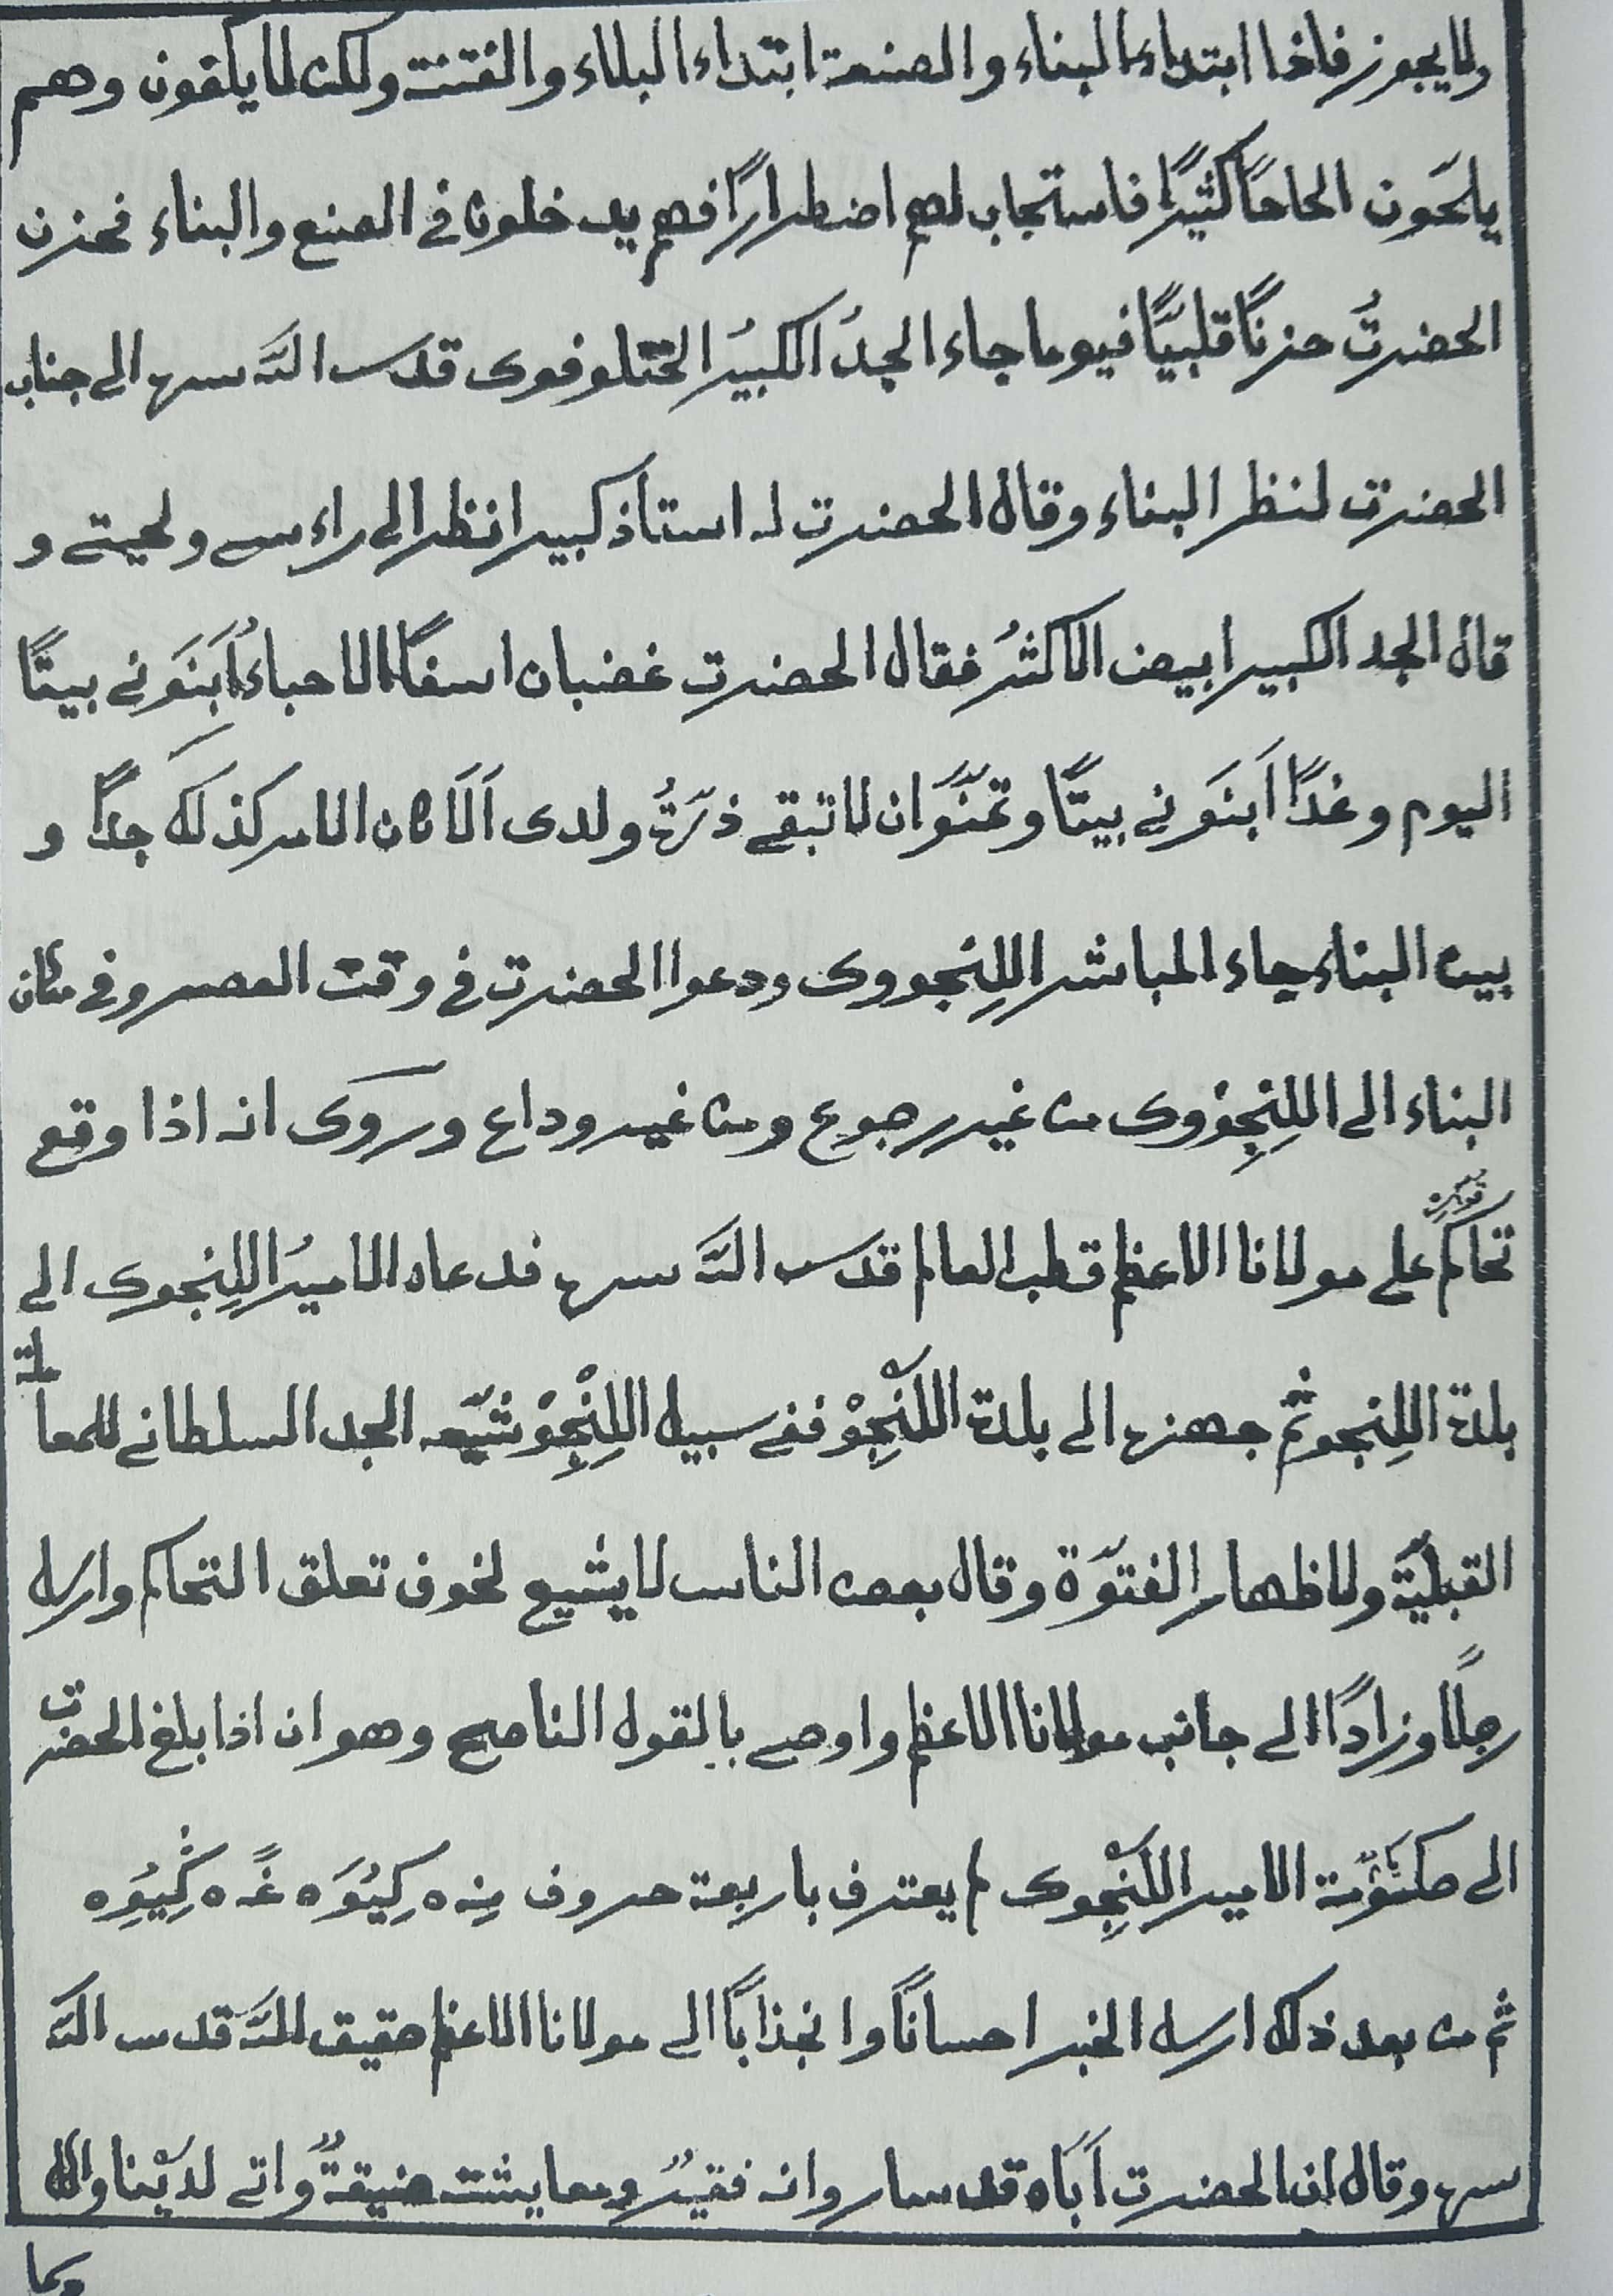 ولا يجوز فاذا ابتداء البناء والصنعة ابتداء البلاء والفتنة ولكن لا يلقون وهم
يلحّون الحاحًا كثيرًا فاستجاب لهم اضطرارًا فهم يدخلون في الصنع والبناء فحزن
الحضرتُ حزنًا قلبيًّا فيوما جاء الجدُ الكبيرُ الختلوفوى قدس اللّه سره الى جناب
الحضرت لنظر البناء وقال الحضرت له استاذ كبير انظر الى راءسے ولحيتے و
قال الجد الكبير ابيض الاكثرُ فقال الحضرت غضبان اسفًا الاحباءُ اَبنَونے بيتًا
اليوم وغدًا اَبنَونے بيتًا وتمنَّوا ان لا تبقے ذرّةُ ولدى اَلَا كان الامر كذلك جدًّا و
بين البناء جاء المباشر اللِنجووى ودعوا الحضرت في وقت العصر وفي مكان
البناء الى اللِنجِوْوى من غير رجوع ومن غير وداع وروى انه اذا وقع
تحاكم على مولانا الاعظم قطب العالم قدس اللّه سره فدعاه الاميرُ اللِنجوى الى
بلدة اللِنجو ثمّ جهزه الى بلدة اللَنْجِوْ ففے سبيل اللِنْجِوْ شيّعه الجد السلطانے للمعاملة
القبليّة ولاظهار الفتوّة وقال بعض الناس لا يشيع لخوف تعلق التحاكم وارسل
رجلًا وزادًا الى جانب مولانا الاعظم واوصے بالقول الناصح وهو ان اذا بلغ الحضرت
الى الامير اللَنْجِوى لم يعترف باربعة حروف مِنه كِيُوَه غًه كِّيُوِه
ثم من بعد ذلك ارسل الخبر احسانًا وانجذابًا الى مولانا الاعظم حقيق للّه قدس اللّه
سره وقال ان الحضرت اَبَاه قد سار وانه فقيرٌ ومعايشتة ضيقةٌ واتے لديْنا والله
وكما